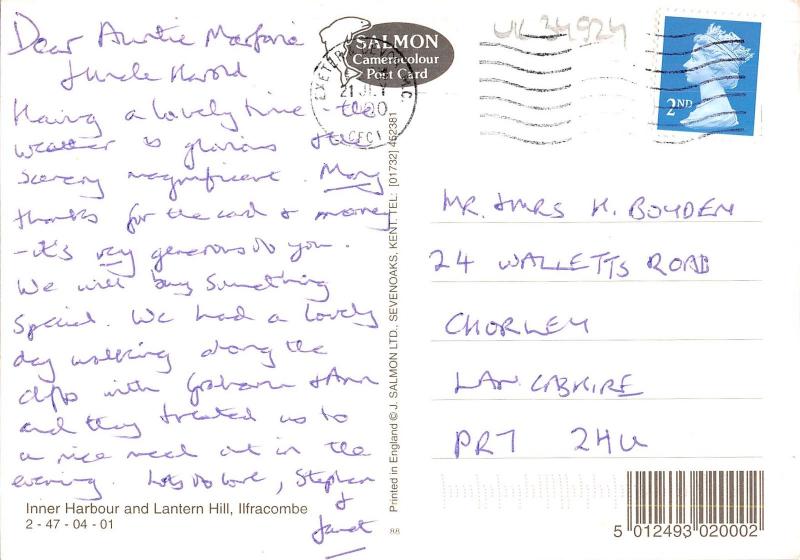 Dear Auntie Marjorie
& Uncle Harold
Having a lovely time - the
weather is glorious & the
scenery magnificent. Many
thanks for the card & money
- it's very generous of you.
We will buy something
special. We had a lovely
day walking along the
cliffs with Graham & Ann
and they treated us to
a nice meal out in the
evening. Lots of love, Stephen
&
Janet
Inner Harbour and Lantern Hill, Ilfracombe
2 - 47 - 04 - 01
SALMON
Cameracolour
Post Card
EXETER DEVON
21 JLY
Printed in England © J. SALMON LTD. SEVENOAKS, KENT. TEL: [01732] 452381
88
UK 34924
2ND
MR. & MRS H. BOYDEN
24 WALLETTS ROAD
CHORLEY
LANCASHIRE
PR7 2HU
5 012493 020002